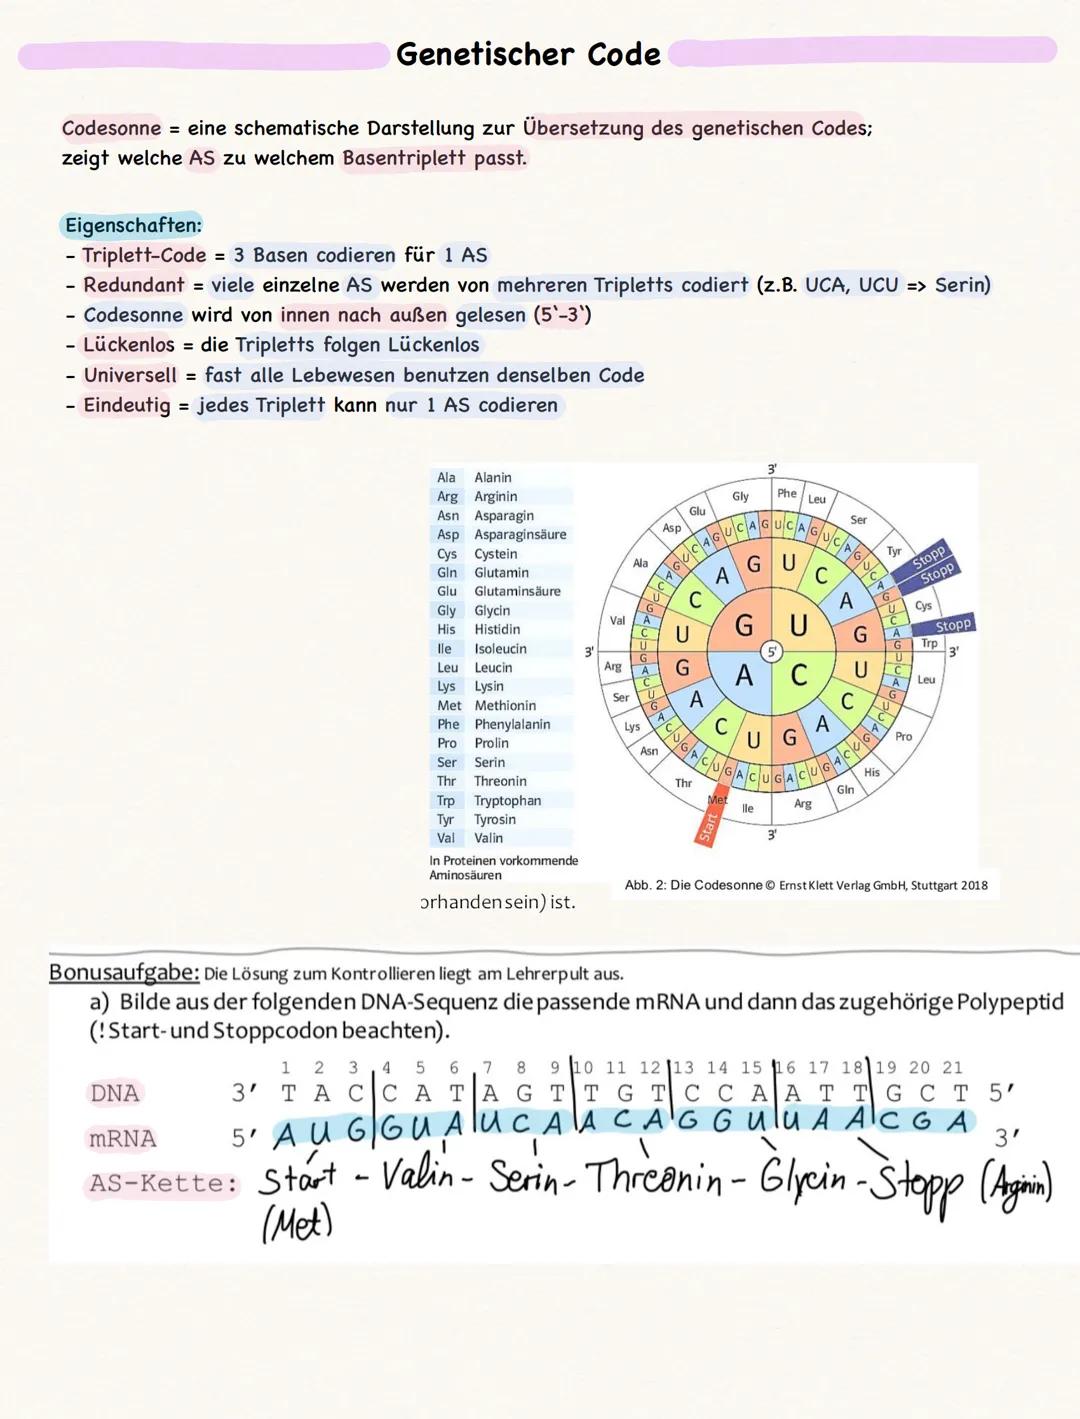 Genetischer Code
Codesonne = eine schematische Darstellung zur Übersetzung des genetischen Codes;
zeigt welche AS zu welchem Basentriplett passt.
Eigenschaften:
- Triplett-Code = 3 Basen codieren für 1 AS
- Redundant = viele einzelne AS werden von mehreren Tripletts codiert (z.B. UCA, UCU => Serin)
- Codesonne wird von innen nach außen gelesen (5`-3`)
- Lückenlos = die Tripletts folgen Lückenlos
- Universell = fast alle Lebewesen benutzen denselben Code
- Eindeutig = jedes Triplett kann nur 1 AS codieren
Ala Alanin
Arg Arginin
Asn Asparagin
Asp Asparaginsäure
Cys Cystein
Gln Glutamin
Glu Glutaminsäure
Gly Glycin
His Histidin
Ile Isoleucin
Leu Leucin
Lys Lysin
Met Methionin
Phe Phenylalanin
Pro Prolin
Ser Serin
Thr Threonin
Trp Tryptophan
Tyr Tyrosin
Val Valin
In Proteinen vorkommende
Aminosäuren
3'
Gly Phe Leu
Glu Ser
Asp Tyr Stopp
Stopp
Ala Cys
Val Stopp
Trp
3' 5' 3'
Arg Leu
Ser
Lys Pro
Asn His
Thr Gln
Met Ile Arg
Start
3'
G U
A C
A G U C
C A
U G
G U
A C
C U G A
Abb. 2: Die Codesonne © Ernst Klett Verlag GmbH, Stuttgart 2018
orhanden sein) ist.
Bonusaufgabe: Die Lösung zum Kontrollieren liegt am Lehrerpult aus.
a) Bilde aus der folgenden DNA-Sequenz die passende mRNA und dann das zugehörige Polypeptid
(! Start- und Stoppcodon beachten).
1 2 3 4 5 6 7 8 9 10 11 12 13 14 15 16 17 18 19 20 21
DNA 3' T A C C A T A G T T G T C C A A T T G C T 5'
mRNA 5' A U G G U A U C A A C A G G U U A A C G A 3'
AS-Kette: Start - Valin - Serin - Threonin - Glycin - Stopp (Arginin)
(Met)